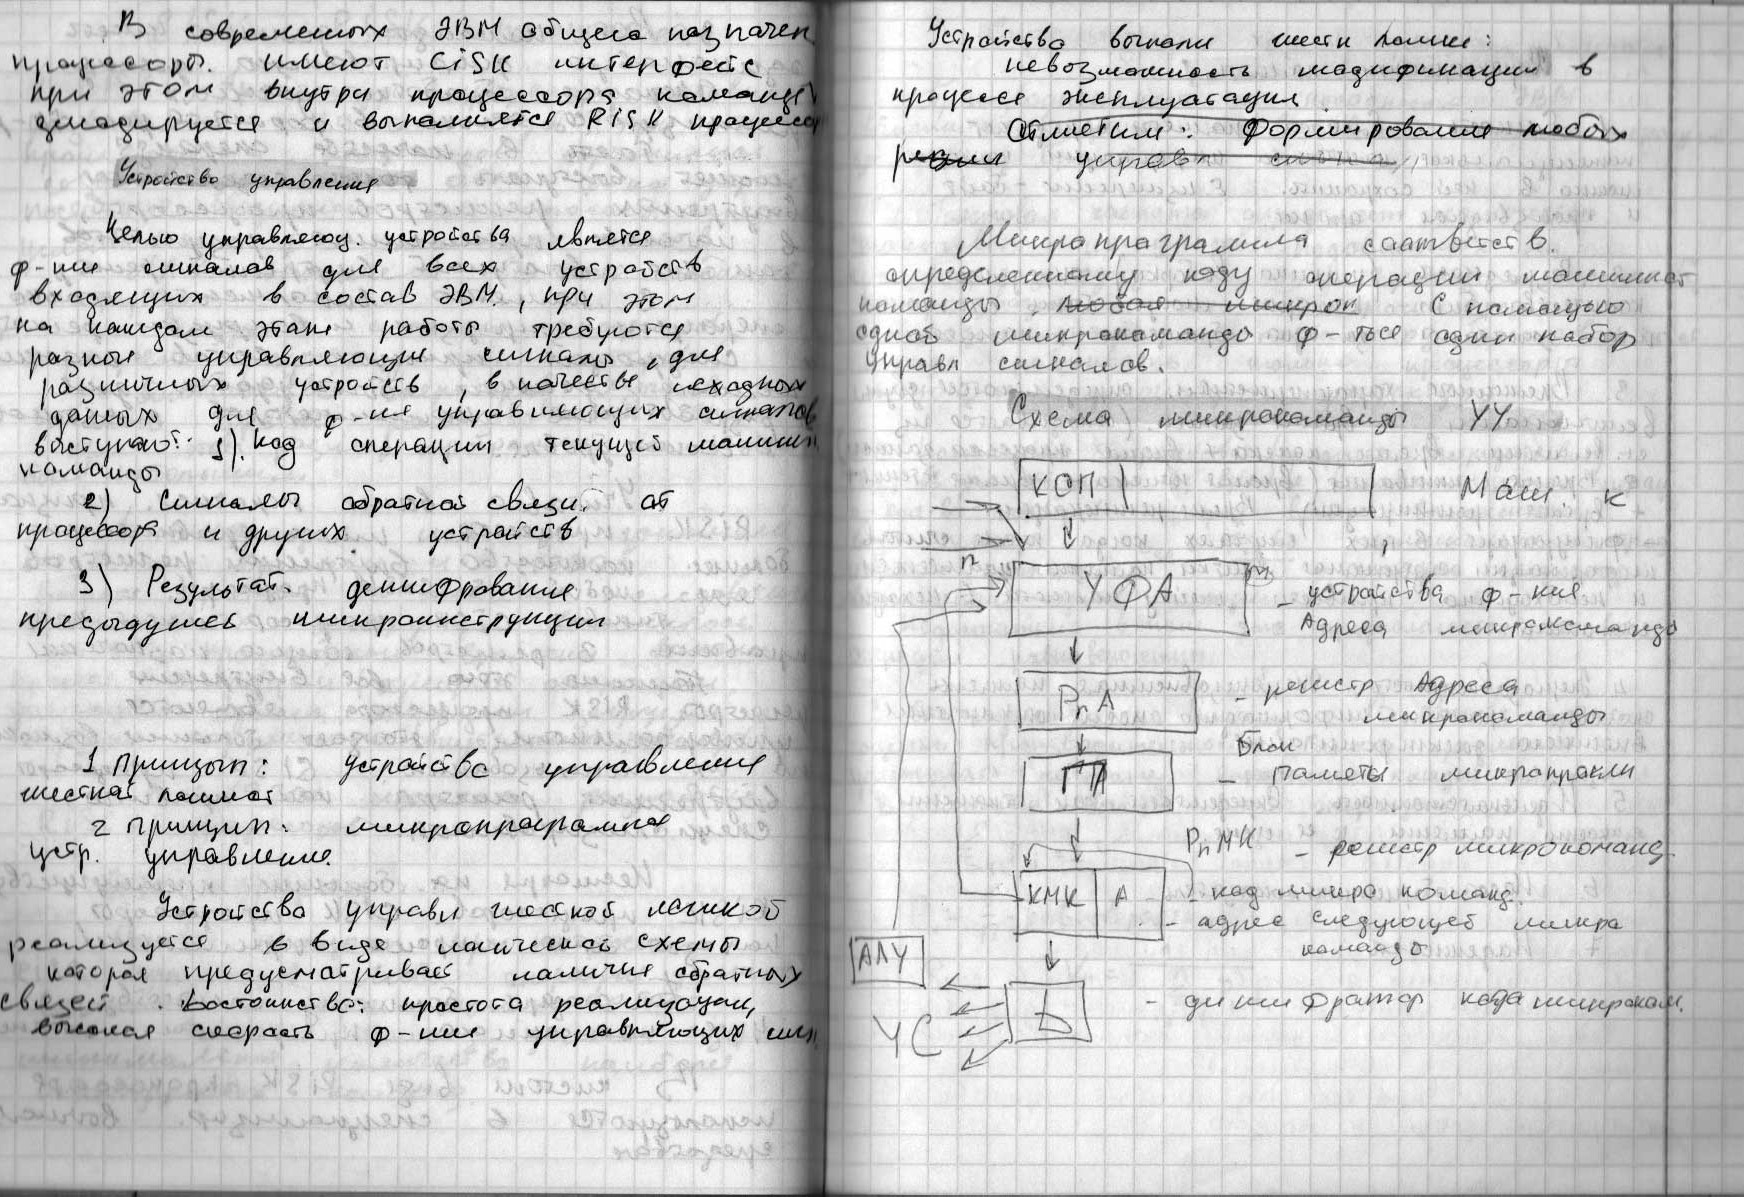 В современных ЭВМ общего назначен
процессоры. имеют CiSK интерфейс
при этом внутри процессора команды
декодируется и выполняется RiSK процессо
Устройство управления
Целью управляющ. устройства является
ф-ние сигналов для всех устройств
входящих в состав ЭВМ, при этом
на каждом этапе работы требуются
разные управляющие сигналы, для
различных устройств, в качестве исходных
данных для ф-ния управляющих сигналов
выступают: 1). Код операции текущей машин
команды
2) Сигналы обратной связи. от
процессора и других устройств
3) Результат. дешифрования
предыдущей микроинструкции
1 Принцып: устройства управления
жесткой
2 принцип: микропрограмное
устр. управление.
Устройства управл жесткой логикой
реализуется в виде схемы
которая предусматривает наличие обратных
связей. Достоинства: простота реализации,
высокая скорость ф-ния управляющих
Устройства
невозможность модификации в
процессе эксплуатации
Отметим: Формирование любых
управл
Микропрограмма соответств.
определенному коду операции машинной
команды, любая микрок С помощью
одной микрокоманды ф-тся один набор
управл сигналов.
Схема микрокоманды УУ
КОП Маш. к
n
УФА - устройства ф-ния
Адреса микрокоманды
РгА - регистр Адреса
микрокоманды
Блок
ПА - памяты
РгМК - регистр микрокоманд.
КМК А - код микро команд.
- адрес следующей микро
команды
АЛУ
УС
D - дешифратор кода микроком.